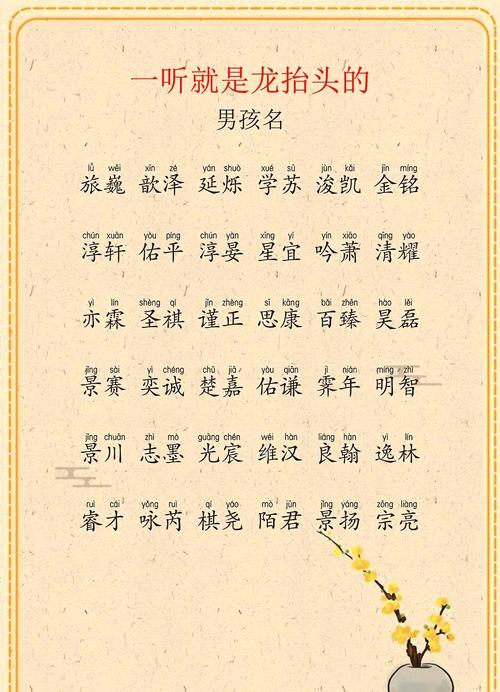 一听就是龙抬头的
男孩名
lǔ wēi xīn zé yán shuò xué sū jùn kǎi jīn míng
旅巍 歆泽 延烁 学苏 浚凯 金铭
chún xuān yòu píng chún yàn xīng yí yín xiāo qīng yào
淳轩 佑平 淳晏 星宜 吟萧 清耀
yì lín shèng qí jǐn zhèng sī kāng bǎi zhēn hào lěi
亦霖 圣祺 谨正 思康 百臻 昊磊
jǐng sài yì chéng chǔ jiā yòu qiān jì nián míng zhì
景赛 奕诚 楚嘉 佑谦 霁年 明智
jǐng chuān zhì mò guāng chén wéi hàn liáng hàn yì lín
景川 志墨 光宸 维汉 良翰 逸林
ruì cái yǒng ruì qí yáo mò jūn jǐng yáng zōng liàng
睿才 咏芮 棋尧 陌君 景扬 宗亮